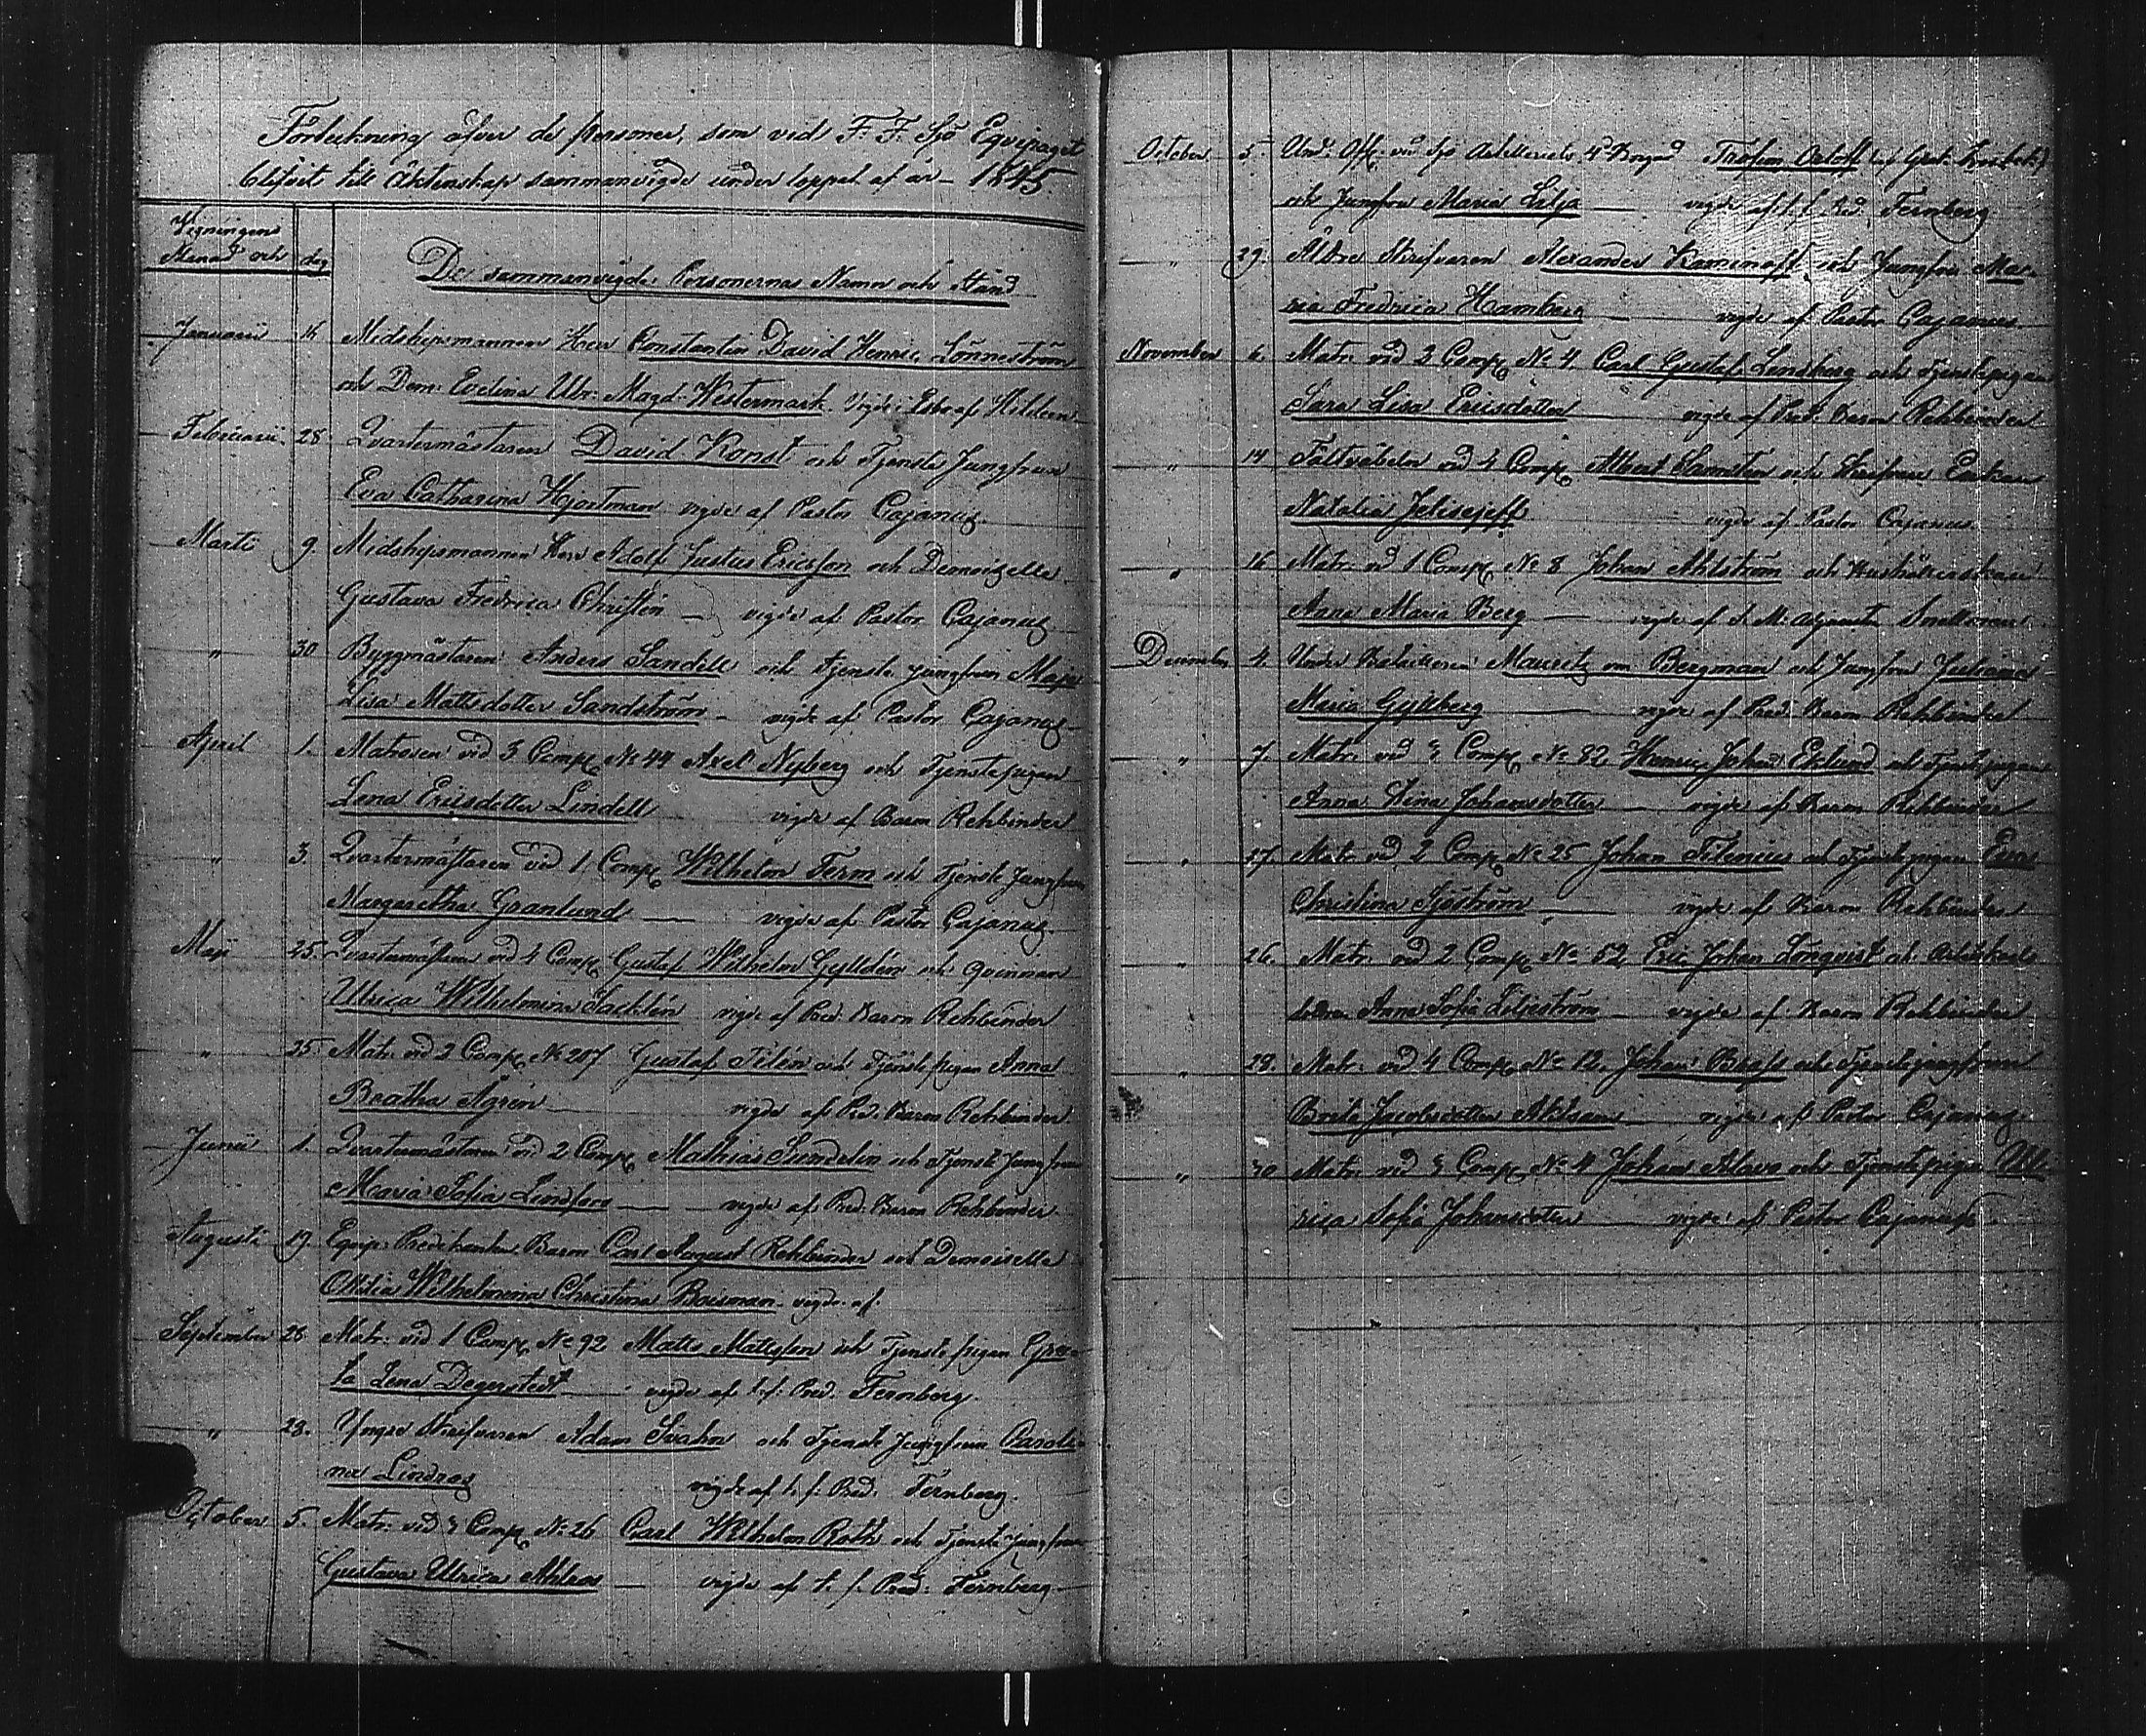 Förteckning öfver de personer, som vid F. F. Sjö Equipaget
blifvit till äktenskap sammanvigde under loppet af år 1845
Vigningens
Månad och dag
De sammanvigde Personernas Namn och Stånd
Januarii 16 Midshipsmannen Herr Constantin David Henric Lönneström
och Dem: Evelina Ulr: Magd: Westermark. Vigde af
Februarii 28 Qvartermästaren David Konst och Tjenste Jungfrun
Eva Catharina Hjortman vigde af Pastor Cajanus
Marti 9. Midshipsmannen Herr Adolf Justus Ericsson och Demoiselle
Gustava Fredrica Christién — vigde af Pastor Cajanus
" 30 Byggmästaren Anders Sandell och Tjenste jungfrun Maja
Lisa Mattsdotter Sandström — vigde af Pastor Cajanus
April 1. Matrosen vid 3 Comp. No 44 Axel Nyberg och Tjenstepigan
Lena Ericsdotter Lindell vigde af Baron Rehbinder
" 3. Qvartermästaren vid 1 Comp. Wilhelm Ferm och Tjenste Jungfrun
Margaretha Granlund — vigde af Pastor Cajanus
Maji 25. Qvartermästaren vid 4 Comp. Gustaf Wilhelm Gylldén och Qvinnan
Ulrica Wilhelmina Sacklén vigde af Pred. Baron Rehbinder
" 25 Matr. vid 2 Comp. No 207 Gustaf Tilén och Tjenstepigan Anna
Beatha Ågren — vigde af Pred: Baron Rehbinder
Junii 1. Qvartermästaren vid 2 Comp. Mathias Sundelin och Tjenste Jungfrun
Maria Sofia Lindfors — vigde af Pred. Baron Rehbinder
Augusti 19. Equip: Predikanten Baron Carl August Rehbinder och Demoiselle
Ottilia Wilhelmina Christina Boisman vigde af
September 28 Matr. vid 1 Comp. No 92 Matts Mattsson och Tjenste pigan Gre-
ta Lena Degerstedt — vigde af t. f. Pred. Fernberg.
" 28. Yngre Skrifvaren Adam Svahn och Tjenste Jungfrun Caroli-
na Lindros vigde af t. f. Pred. Fernberg.
October 5. Matr. vid 3 Comp. No 26 Carl Wilhelm Roth och Tjenste Jungfrun
Gustava Ulrica Ahlros — vigde af t. f. Pred: Fernberg
October 5. Und. Off. vid Sjö Artilleriets 4d Brigad Trofim Orloff
och Jungfrun Maria Lilja — vigde af t. f. Pred. Fernberg
" 29. Äldre Skrifvaren Alexander Kaminoff och Jungfrun Ma-
ria Fredrica Hamberg — vigde af Pastor Cajanus
November 6. Matr. vid 3 Comp. No 4. Carl Gustaf Lindberg och Tjenstepigan
Sara Lisa Ericsdotter — vigde af Pred. Baron Rehbinder
" 14 Fältväbeln vid 4 Comp. Albert Sannstén och Enkan
Natalia Jelisejeff vigde af Pastor Cajanus
" 16 Matr. vid 1 Comp. No 8 Johan Ahlström och Hushållerskan
Anna Maria Berg — vigde af Adjuncten Snellman
December 4. Under Mauritz von Bergman och Jungfrun Juliana
Maria Gyllberg — vigde af Pred. Baron Rehbinder
" 7. Matr. vid 3 Comp. No 82. Henric Johan Eklund och Tjenstepigan
Anna Stina Johansdotter — vigde af Baron Rehbinder
" 17. Matr. vid 2 Comp. No 25 Johan Silenius och Tjenstepigan Eva
Christina Sjöström — vigde af Baron Rehbinder
" 26. Matr. vid 2 Comp. No 52 Eric Johan Lönqvist och Arbetskarls
dottren Anna Sofia Liljeström — vigde af Baron Rehbinder
" 28. Matr. vid 4 Comp. No 12. Johan Brass och Tjenstejungfrun
Brita Jacobsdotter — vigde af Pastor Cajanus
" 30 Matr. vid 3 Comp. No 4 Johan Alava och Tjenstepigan Ul-
rica Sofia Johansdotter — vigde af Pastor Cajanus